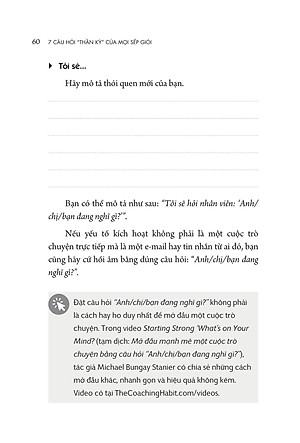 60    7 CÂU HỎI "THẦN KỲ" CỦA MỌI SẾP GIỎI
Tôi sẽ...
Hãy mô tả thói quen mới của bạn.
Bạn có thể mô tả như sau: "Tôi sẽ hỏi nhân viên: 'Anh/
chị/bạn đang nghĩ gì?'".
Nếu yếu tố kích hoạt không phải là một cuộc trò
chuyện trực tiếp mà là một e-mail hay tin nhắn từ ai đó, bạn
cũng hãy cứ hồi âm bằng đúng câu hỏi: "Anh/chị/bạn đang
nghĩ gì?".
Đặt câu hỏi "Anh/chị/bạn đang nghĩ gì?" không phải
là cách hay ho duy nhất để mở đầu một cuộc trò
chuyện. Trong video Starting Strong 'What's on Your
Mind? (tạm dịch: Mở đầu mạnh mẽ một cuộc trò
chuyện bằng câu hỏi "Anh/chị/bạn đang nghĩ gì?"),
tác giả Michael Bungay Stanier có chia sẻ những cách
mở đầu khác, nhanh gọn và hiệu quả không kém.
Video có tại TheCoachingHabit.com/videos.